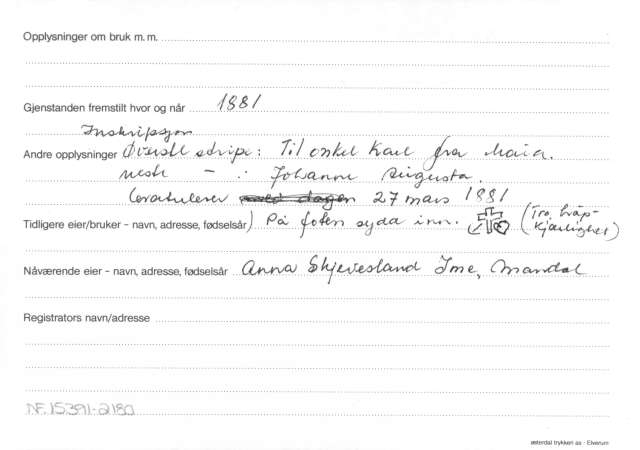 Opplysninger om bruk m. m.
Gjenstanden fremstilt hvor og når 1881
Inskripsjon
Andre opplysninger Øverste stripe: Til onkel Karl fra Maria.
neste - : Johanne Augusta.
Gratulerer med dagen 27 mars 1881
Tidligere eier/bruker - navn, adresse, fødselsår) På foten syda inn. (Tro, håp-
Kjærlighet)
Nåværende eier - navn, adresse, fødselsår Anna Skjevesland Ime, Mandal
Registrators navn/adresse
NF.15391-2180
østerdal trykken as - Elverum